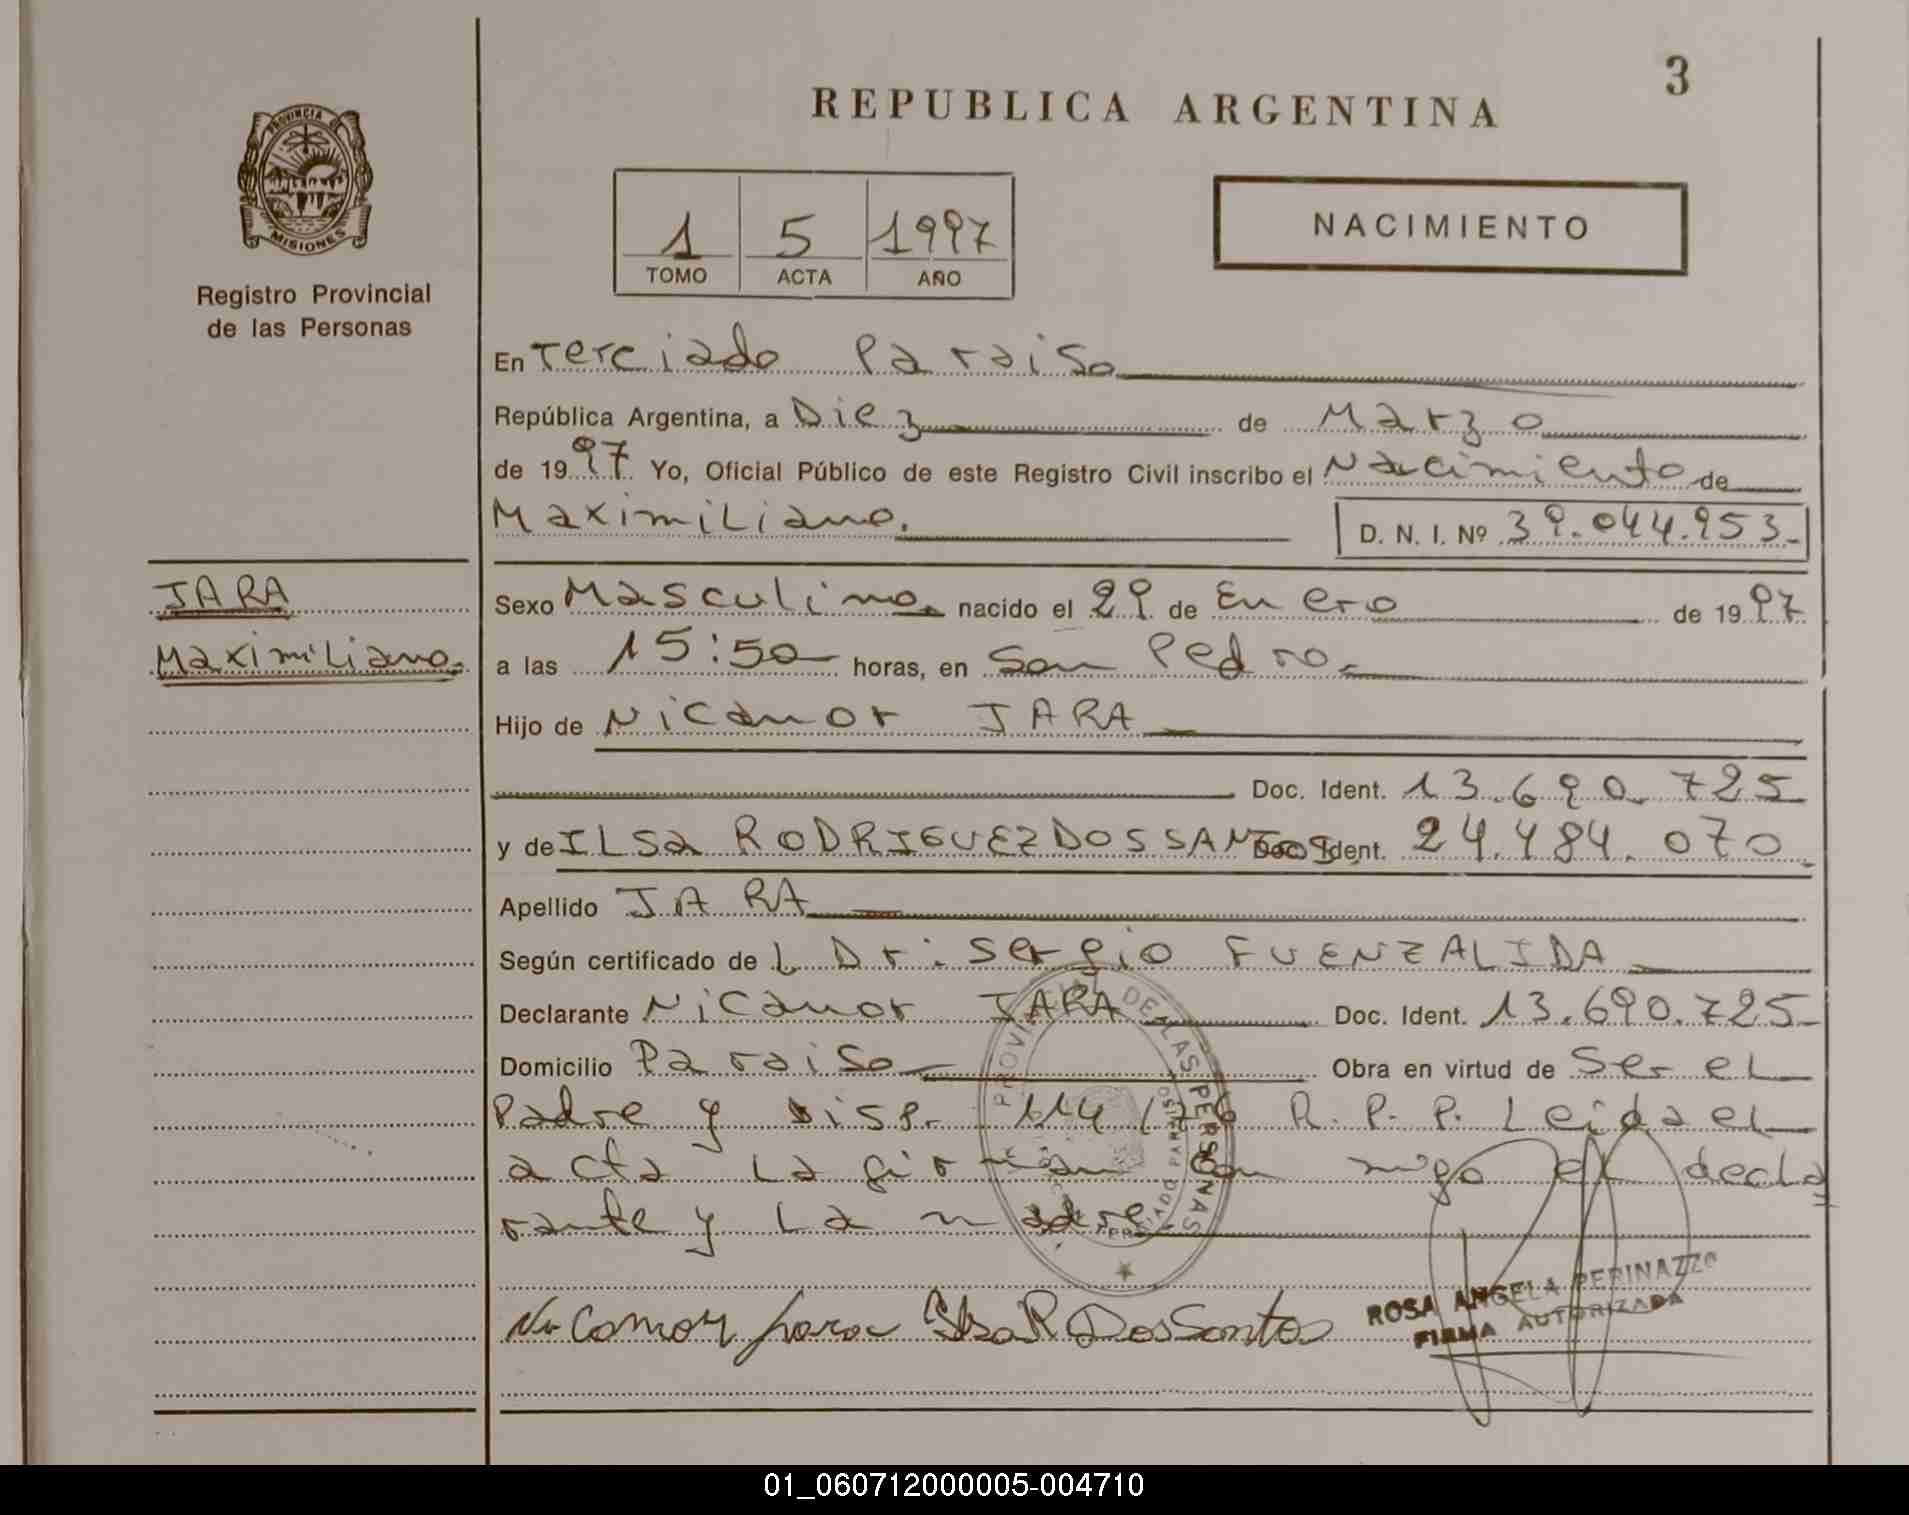 3
REPUBLICA ARGENTINA
PROVINCIA DE
MISIONES
Registro Provincial
de las Personas
1 5 1997
TOMO ACTA AÑO
NACIMIENTO
En Terciado Paraiso
República Argentina, a Diez de Marzo
de 1997. Yo, Oficial Público de este Registro Civil inscribo el Nacimiento de
Maximiliano. D. N. I. Nº 39.044.953.-
JARA
Maximiliano.
Sexo Masculino. nacido el 29 de Enero de 1997
a las 15:50 horas, en San Pedro.-
Hijo de Nicanor JARA
Doc. Ident. 13.690.725
y de ILSA RODRIGUEZ DOS SANTOS Doc. Ident. 24.484.070.
Apellido JARA
Según certificado de L Dr: Sergio FUENZALIDA
Declarante Nicanor JARA Doc. Ident. 13.690.725-
Domicilio Paraiso Obra en virtud de Ser el
Padre y Disp. 114/76 R.P.P. Leida el
acta La firman con migo el decla
rante y La madre.
PROVINCIAL DE LAS PERSONAS
TERCIADO PARAISO
Nicanor Jara Ilsa R Dos Santos
ROSA ANGELA PERINAZZO
FIRMA AUTORIZADA
01_060712000005-004710